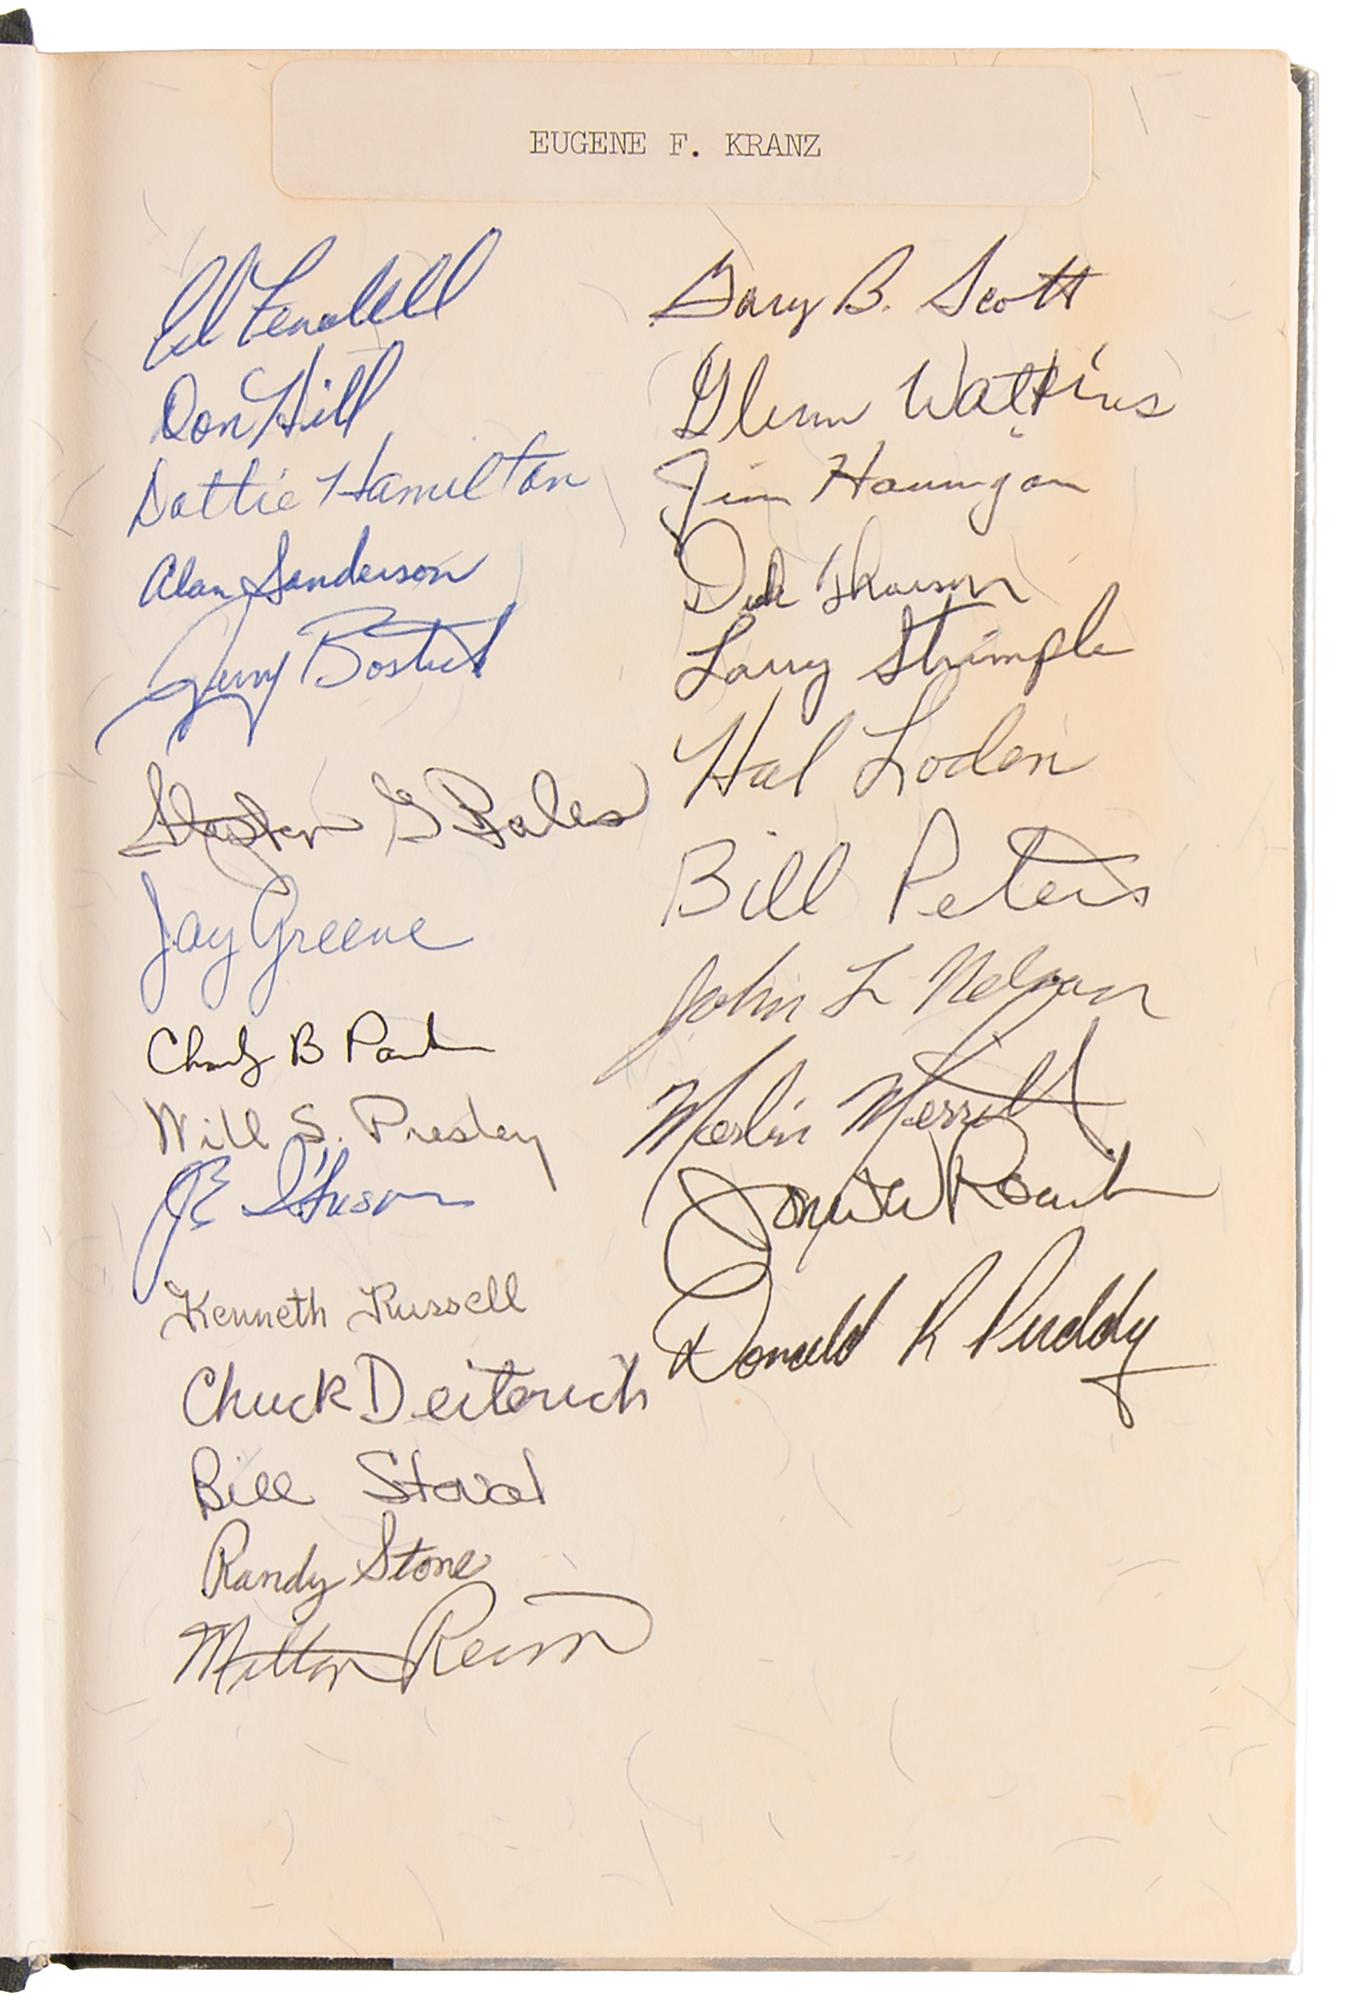 EUGENE F. KRANZ
Ed Fendell
Don Hill
Dottie Hamilton
Alan Sanderson
Jerry Bostick
Stephen G Bales
Jay Greene
Charley B Parker
Will S. Presley
Kenneth Russell
Chuck Deiterich
Bill Stoval
Randy Stone
Milton
Gary B. Scott
Glenn Watkins
Jim Hannigan
Dick Thorson
Larry Strimple
Hal Loden
Bill Peters
John L Nelson
Merlin Merritt
Donald R Puddy